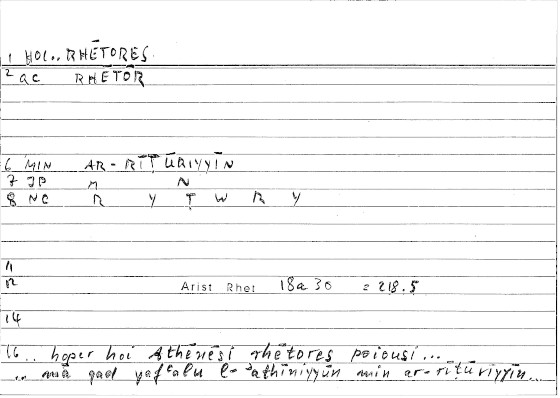 1 HOI.. RHĒTORES
2 GC RHĒTŌR
6 MIN AR-RĪṬŪRIYYĪN
7 JP M N
8 NC R Y Ṭ W R Y
11
12 Arist Rhet 18a30 = 218.5
14
16 .. hoper hoi Athēnēsi rhētores poiousi...
.. mā qad yafʿalu l-ʾathīniyyūn min ar-rīṭūriyyīn...